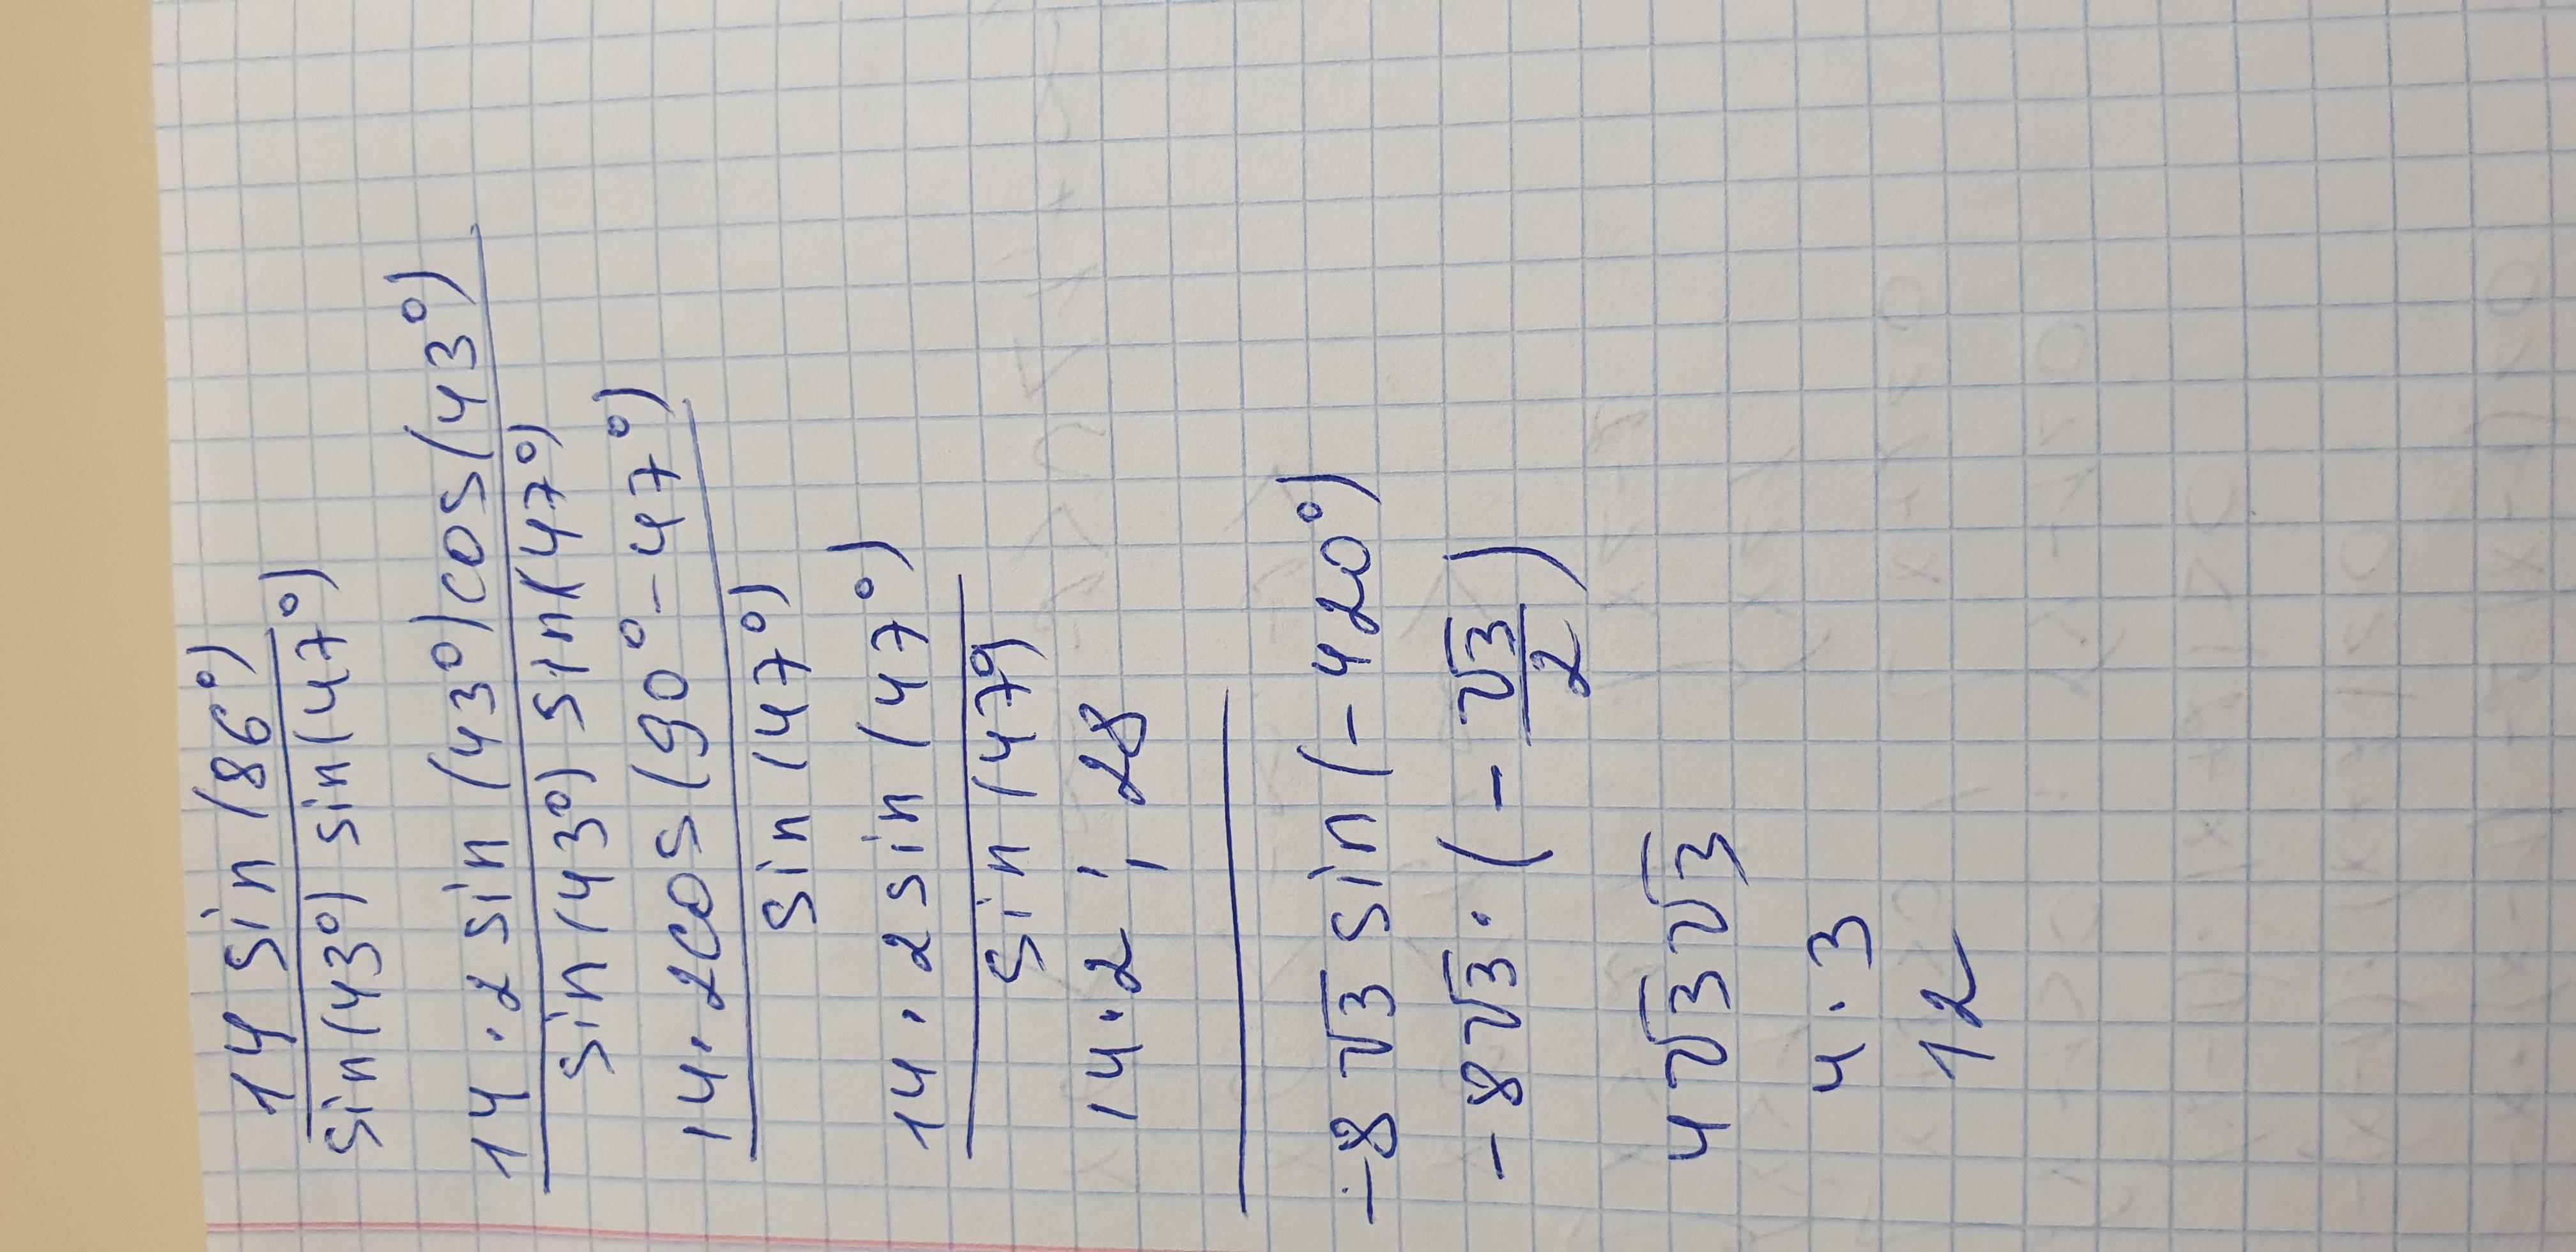 14 sin (86°)
sin(43°) sin(47°)
14 · 2 sin (43°) cos(43°)
sin (43°) sin (47°)
14 · 2cos (90° - 47°)
sin (47°)
14 · 2 sin (47°)
sin (47°)
14 · 2 ; 28
-8 √3 sin (-420°)
-8 √3 · (- √3/2)
4 √3 √3
4 · 3
12